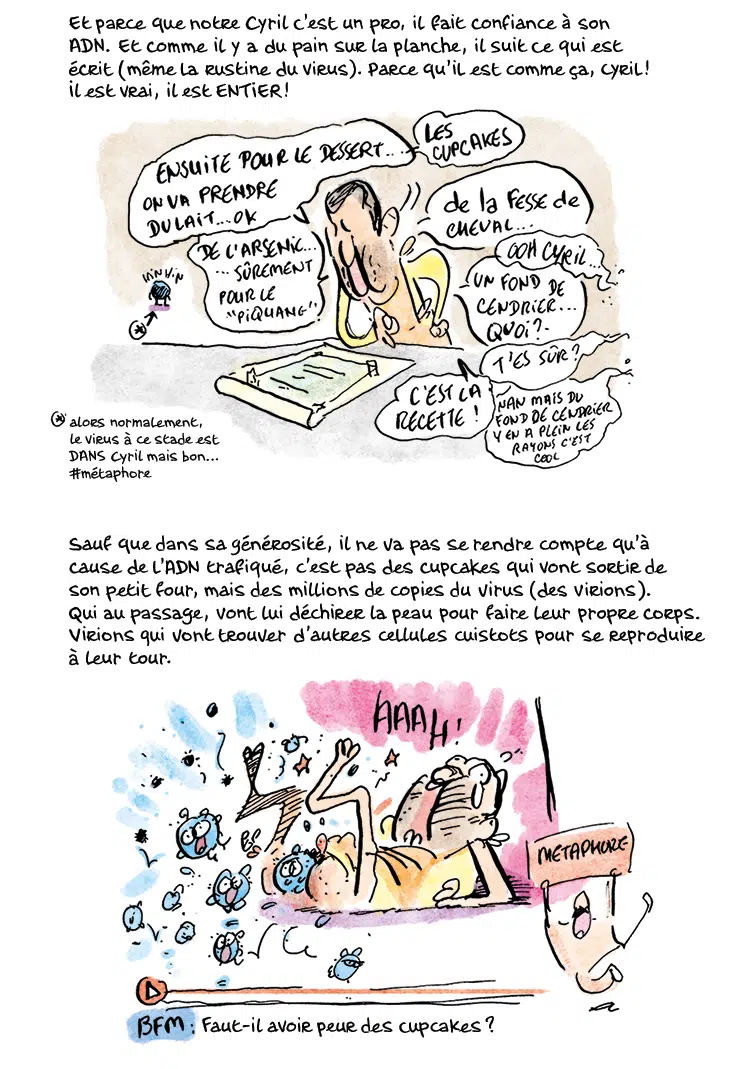 Et parce que notre Cyril c'est un pro, il fait confiance à son
ADN. Et comme il y a du pain sur la planche, il suit ce qui est
écrit (même la rustine du virus). Parce qu'il est comme ça, Cyril!
il est vrai, il est ENTiER!
ENSUITE POUR LE DESSERT...
ON VA PRENDRE
DU LAIT...OK
LES
CUPCAKES
de la FESSE de
CHEVAL...
DE L'ARSENIC...
... SÛREMENT
POUR LE
"PiQUANG"!
OOH CYRIL...
UN FOND DE
CENDRIER...
QUOI?
T'ES SÛR?
C'EST LA
RECETTE!
NAN MAIS DU
FOND DE CENDRIER
Y EN A PLEIN LES
RAYONS C'EST
COOL
* alors normalement,
le virus à ce stade est
DANS Cyril mais bon...
#métaphore
Sauf que dans sa générosité, il ne va pas se rendre compte qu'à
cause de l'ADN trafiqué, c'est pas des cupcakes qui vont sortir de
son petit four, mais des millions de copies du virus (des virions).
Qui au passage, vont lui déchirer la peau pour faire leur propre corps.
Virions qui vont trouver d'autres cellules cuistots pour se reproduire
à leur tour.
AAAH!
METAPHORE
BFM: Faut-il avoir peur des cupcakes?